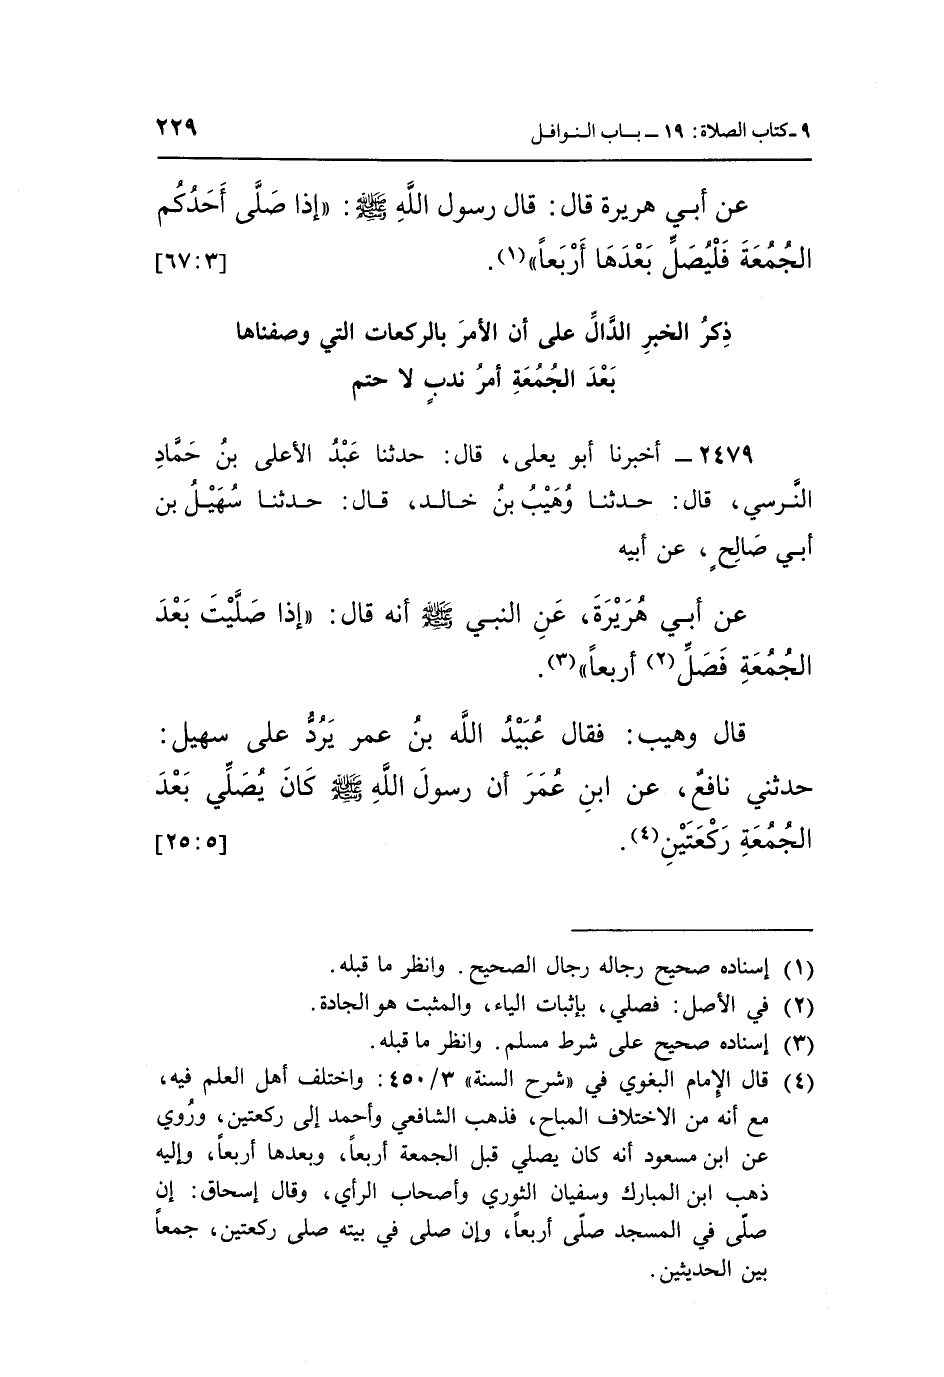 ٩ـ كتاب الصلاة: ١٩ ـ بـاب النوافل ٢٢٩
عن أبـي هريرة قال: قال رسول اللَّهِ ﷺ: «إذا صَلَّى أَحَدُكُم
الجُمُعَةَ فَلْيُصَلِّ بَعْدَهَا أَرْبَعاً»(١). [٦٧:٣]
ذِكرُ الخبرِ الدَّالِّ على أن الأمرَ بالركعات التي وصفناها
بَعْدَ الجُمُعَةِ أمرُ ندبٍ لا حتم
٢٤٧٩ ـ أخبرنا أبو يعلى، قال: حدثنا عَبْدُ الأعلى بنُ حَمَّادِ
النَّرسي، قال: حدثنا وُهَيْبُ بنُ خالد، قال: حدثنا سُهَيْلُ بن
أبـي صَالِحٍ، عن أبيه
عن أبـي هُرَيْرَةَ، عَنِ النبـي ﷺ أنه قال: «إذا صَلَّيْتَ بَعْدَ
الجُمُعَةِ فَصَلِّ(٢) أربعاً»(٣).
قال وهيب: فقال عُبَيْدُ الله بنُ عمر يَرُدُّ على سهيل:
حدثني نافعٌ، عن ابنِ عُمَرَ أن رسولَ اللَّهِ ﷺ كَانَ يُصَلِّي بَعْدَ
الجُمُعَةِ رَكْعَتَيْنِ(٤). [٢٥:٥]
(١) إسناده صحيح رجاله رجال الصحيح. وانظر ما قبله.
(٢) في الأصل: فصلي، بإثبات الياء، والمثبت هو الجادة.
(٣) إسناده صحيح على شرط مسلم. وانظر ما قبله.
(٤) قال الإمام البغوي في «شرح السنة» ٤٥٠/٣: واختلف أهل العلم فيه،
مع أنه من الاختلاف المباح، فذهب الشافعي وأحمد إلى ركعتين، ورُوي
عن ابن مسعود أنه كان يصلي قبل الجمعة أربعاً، وبعدها أربعاً، وإليه
ذهب ابن المبارك وسفيان الثوري وأصحاب الرأي، وقال إسحاق: إن
صلّى في المسجد صلّى أربعاً، وإن صلى في بيته صلى ركعتين، جمعاً
بين الحديثين.